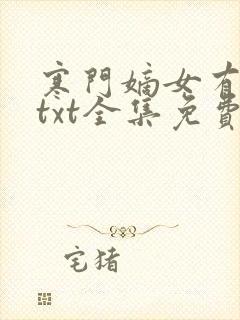 寒門嫡女有
txt全集免費
宅猪